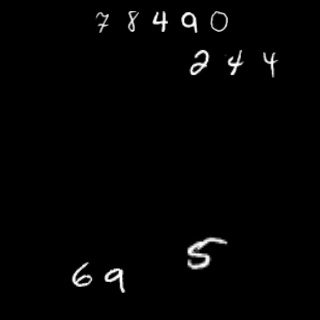 78490
244
5
69